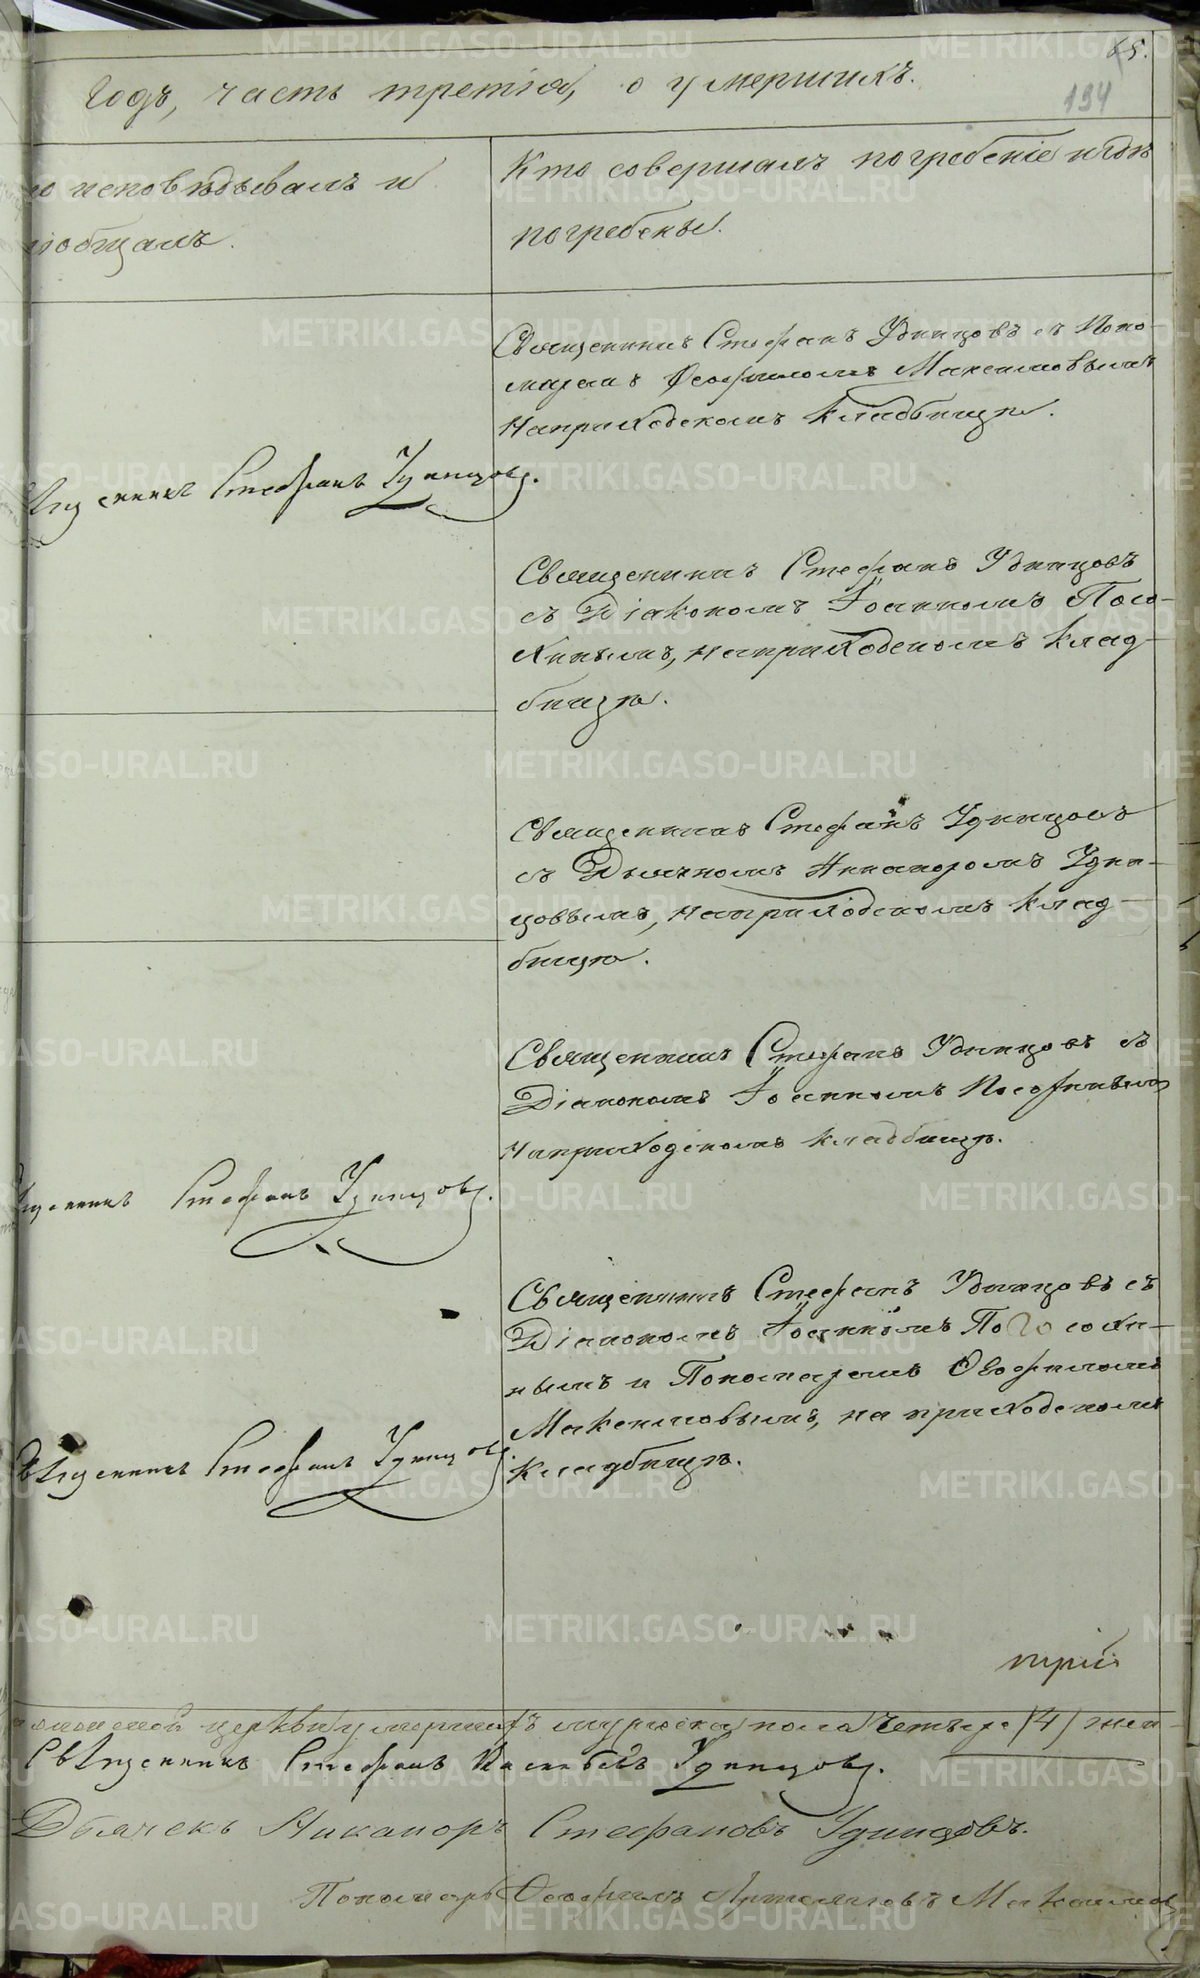 65.
194
Годъ, часть третія, о умершихъ.
о исповѣдывалъ и
іобщалъ.
Кто совершалъ погребеніе и гдѣ
погребены.
Священникъ Стефанъ Удинцовъ съ Поно-
маремъ Ѳеофиломъ Максимовымъ
На приходскомъ кладбищѣ.
Священникъ Стефанъ Удинцовъ.
Священникъ Стефанъ Удинцовъ
съ Діакономъ Іоанномъ Посо-
хинымъ, на приходскомъ клад-
бищѣ.
Священникъ Стефанъ Удинцовъ
съ Дьячкомъ Никаноромъ Удин-
цовымъ, на приходскомъ клад-
бищѣ.
Священникъ Стефанъ Удинцовъ съ
Діакономъ Іоанномъ
На приходскомъ кладбищѣ.
щенникъ Стефанъ Удинцовъ.
Священникъ Стефанъ Удинцовъ съ
Діакономъ Іоанномъ
нымъ и Пономаремъ Ѳеофиломъ
Максимовымъ, на приходскомъ
кладбищѣ.
Священникъ Стефанъ Удинцовъ
церкви умершихъ мужеска пола четыре (4) жен-
Священникъ Стефанъ Удинцовъ.
Дьячекъ Никаноръ Стефановъ Удинцовъ.
Пономарь Ѳеофилъ Артемьевъ Максимов
METRIKI.GASO-URAL.RU